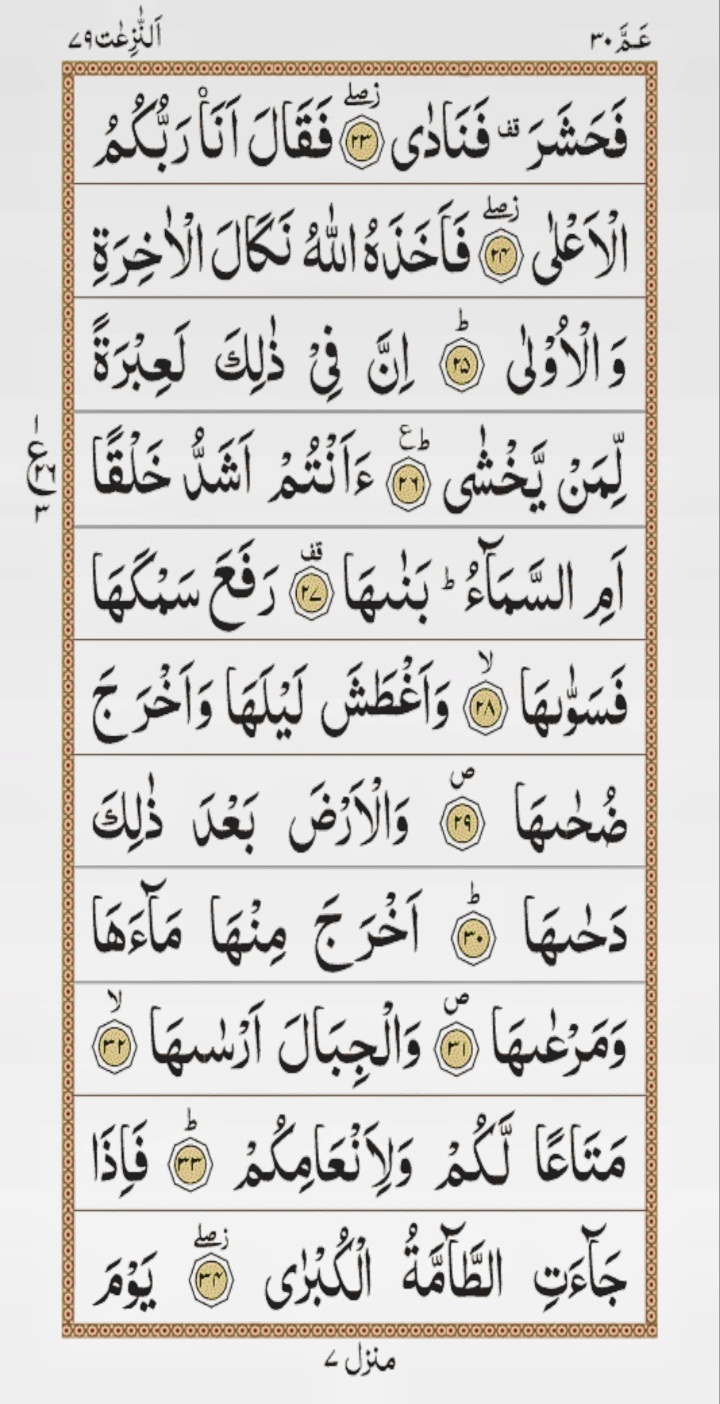 عَمَّ ٣٠ اَلنّٰزِعٰت ٧٩
فَحَشَرَ قف فَنَادٰى ۝٢٣ زصلے فَقَالَ اَنَا۠ رَبُّكُمُ
الْاَعْلٰى ۝٢٤ زصلے فَاَخَذَهُ اللّٰهُ نَكَالَ الْاٰخِرَةِ
وَالْاُوْلٰى ۝٢٥ ط اِنَّ فِيْ ذٰلِكَ لَعِبْرَةً
لِّمَنْ يَّخْشٰى ۝٢٦ ط ع ءَاَنْتُمْ اَشَدُّ خَلْقًا
ع ١ ٢٦ ٣
اَمِ السَّمَآءُ ط بَنٰىهَا ۝٢٧ قف رَفَعَ سَمْكَهَا
فَسَوّٰىهَا ۝٢٨ لا وَاَغْطَشَ لَيْلَهَا وَاَخْرَجَ
ضُحٰىهَا ۝٢٩ ص وَالْاَرْضَ بَعْدَ ذٰلِكَ
دَحٰىهَا ۝٣٠ ط اَخْرَجَ مِنْهَا مَآءَهَا
وَمَرْعٰىهَا ۝٣١ ص وَالْجِبَالَ اَرْسٰىهَا ۝٣٢ لا
مَتَاعًا لَّكُمْ وَلِاَنْعَامِكُمْ ۝٣٣ ط فَاِذَا
جَآءَتِ الطَّآمَّةُ الْكُبْرٰى ۝٣٤ زصلے يَوْمَ
منزل ٧